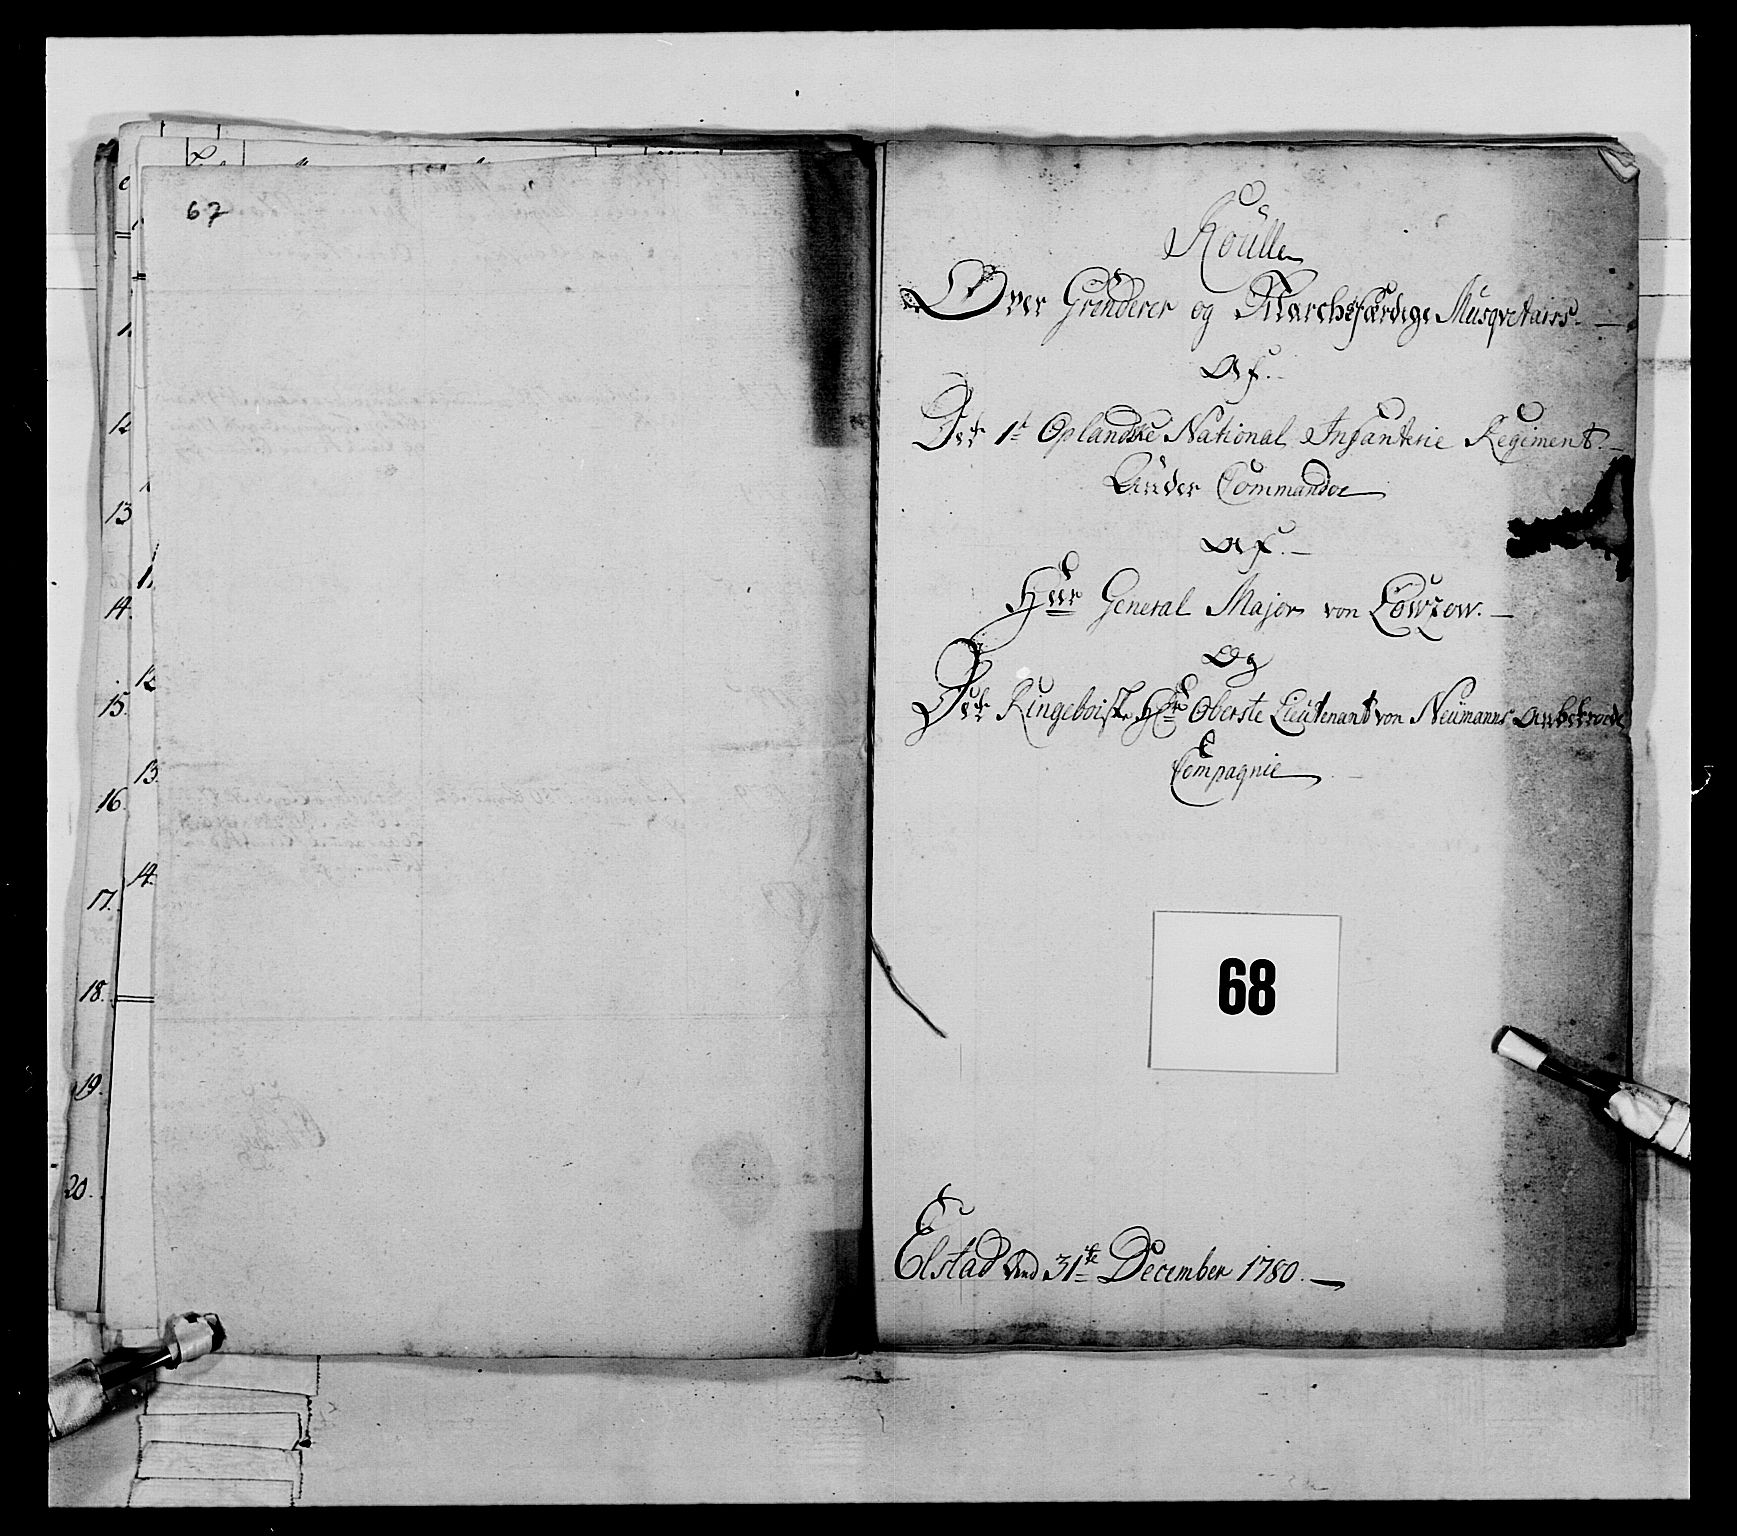 67
12
13
14.
15.
16.
17.
18.
19.
20.
11.
12
13.
14.
Roulle
Over Grenderer og Marchefærdige Musqvetairs.
Af.
Det 1te Oplandske National Infanterie Regiment.
Under Commandoe
Af.
Herr General Major von Lowzow.
Og
Det Ringeboiske Hr Oberste Lieutenant von Neumanns anbetroede
Compagnie
68
Elstad ded 31te December 1780.